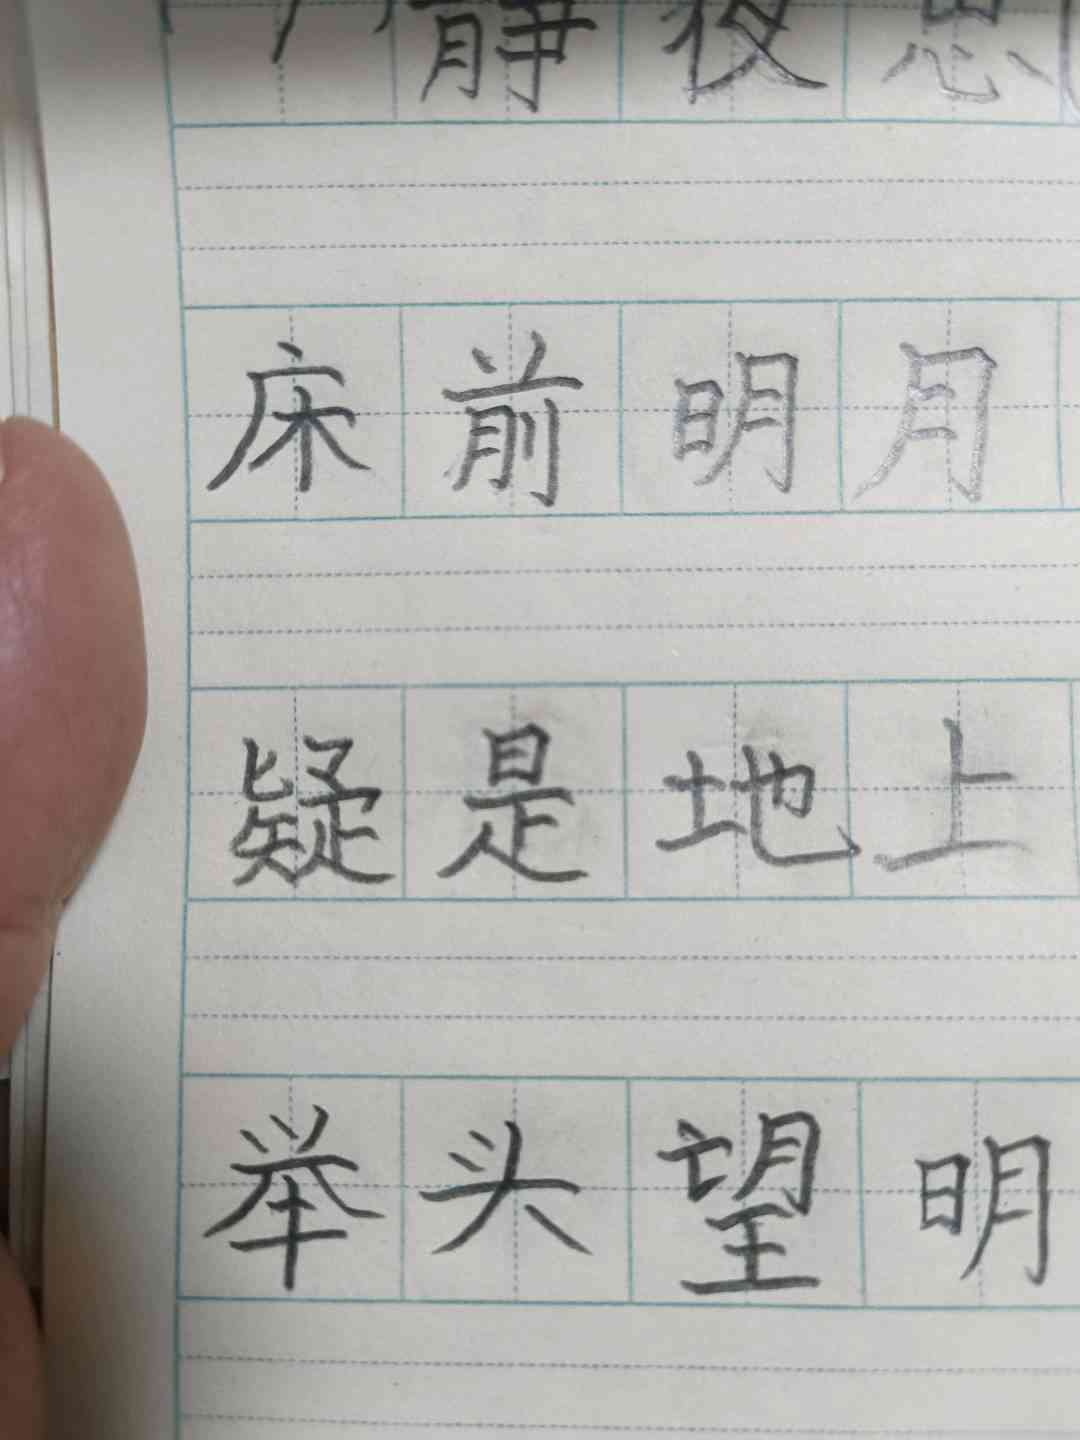 静夜思
床前明月
疑是地上
举头望明